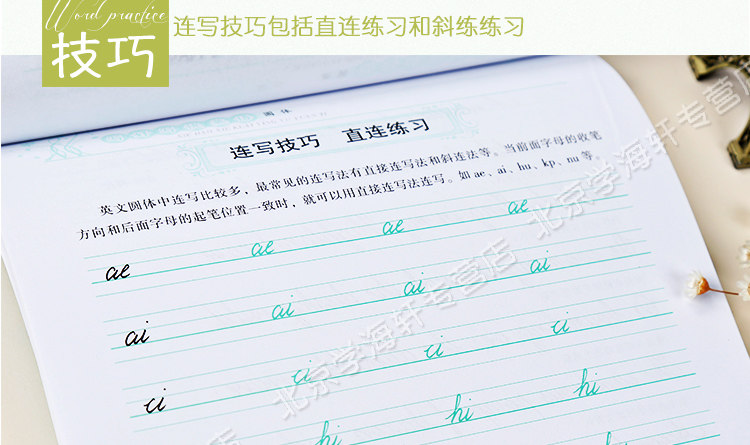 Word practice
技巧
连写技巧包括直连练习和斜练练习
圆体
连写技巧 直连练习
英文圆体中连写比较多，最常见的连写法有直接连写法和斜连法等。当前面字母的收笔
方向和后面字母的起笔位置一致时，就可以用直接连写法连写。如 ae、ai、hu、kp、nu 等。
ae ae ae ae
ai ai ai ai
ci ci ci ci
hi hi hi
北京学海轩专营店
北京学海轩专营店